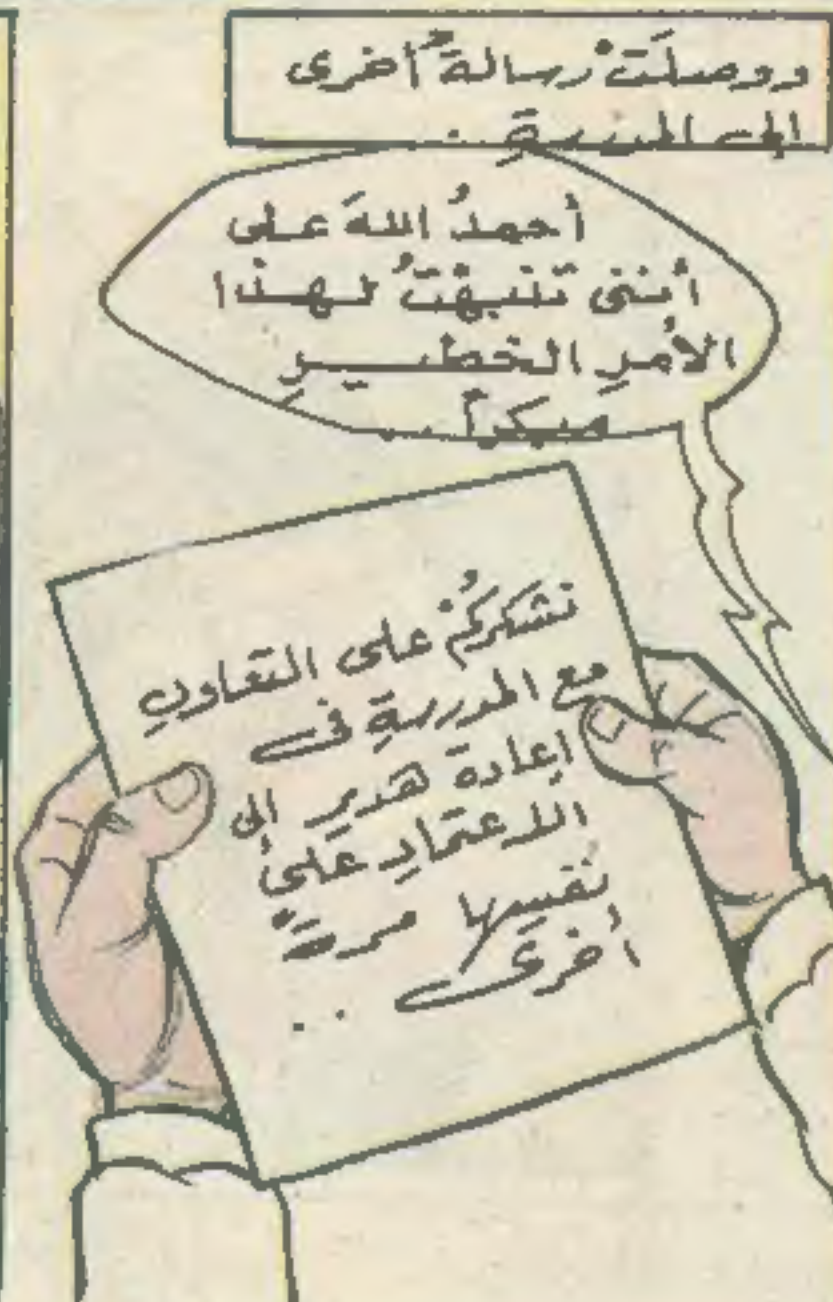 ووصلَتْ رسالةٌ أخرى
إلى المدرسةِ ..
أحمدُ اللهَ على
أننى تنبهْتُ لهذا
الأمرِ الخطيرِ
مبكراً ...
نشكركُمْ على التعاونِ
مع المدرسةِ فى
إعادة هدير إلى
الاعتمادِ علىَ
نفسِها مرةً
أخرى ..